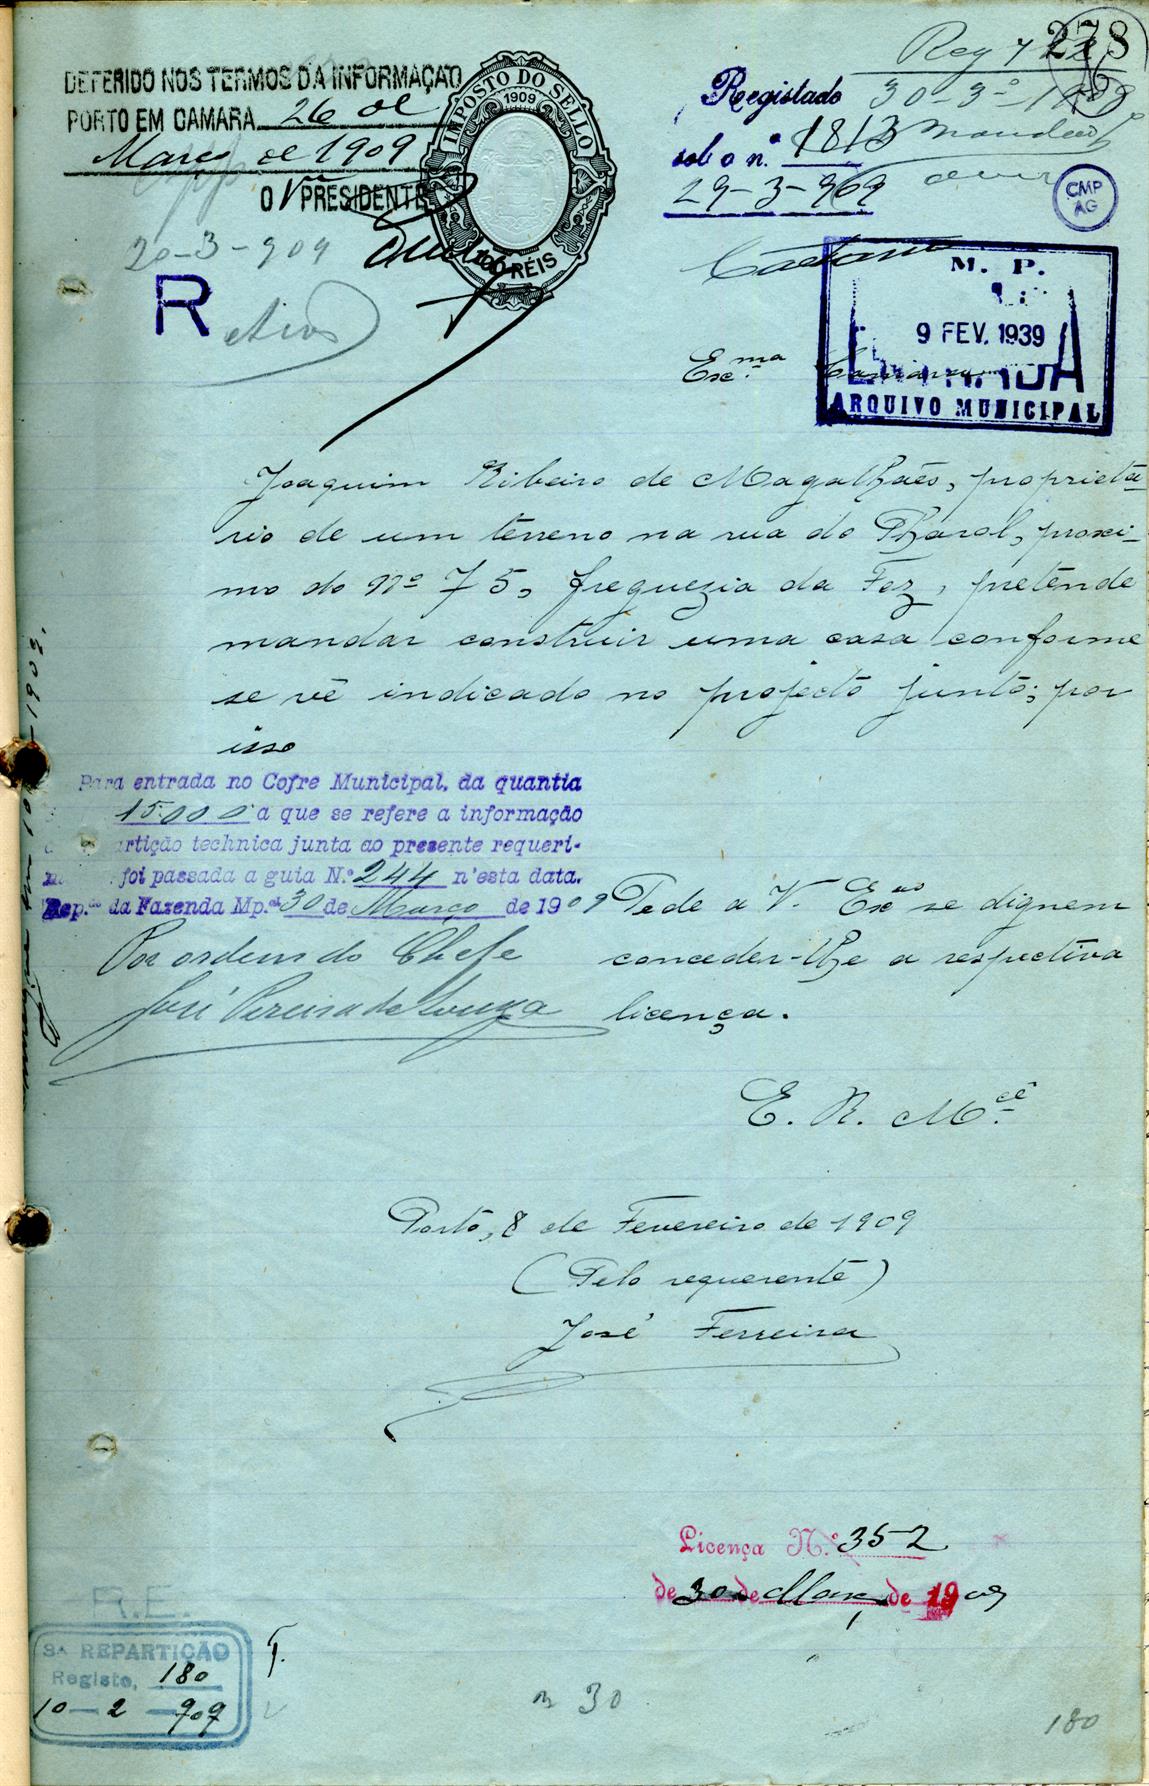 278
DEFERIDO NOS TERMOS DA INFORMAÇÃO
PORTO EM CAMARA 26 de
Março de 1909
O V PRESIDENTE
20-3-909
R
IMPOSTO DO SELLO
1909
100 RÉIS
Reg
30 3º 1909
Registado
sob o n.º 1813
29-3-909
CMP
AG
Caetano
M. P.
9 FEV. 1939
ENTRADA
ARQUIVO MUNICIPAL
Excma Camara
Joaquim Ribeiro de Magalhães, proprietá-
rio de um terreno na rua do Pharol, proxi-
mo do nº 75, freguezia da Foz, pretende
mandar construir uma casa conforme
se vê indicado no projecto junto; por
isso
Para entrada no Cofre Municipal, da quantia
15.000 a que se refere a informação
da repartição technica junta ao presente requeri-
mento foi passada a guia N.º 244 n'esta data.
Rep.ão da Fazenda Mp.al 30 de Março de 1909
Por ordem do Chefe
José Pereira de Souza
Pede a V. Excas se dignem
conceder-lhe a respectiva
licença.
E. R. Mcê
Porto, 8 de Fevereiro de 1909
(Pelo requerente)
José Ferreira
Licença N.º 352
de 30 de Março de 1909
R.E.
3ª REPARTIÇÃO
Registo, 180
10-2-909
T.
30
180